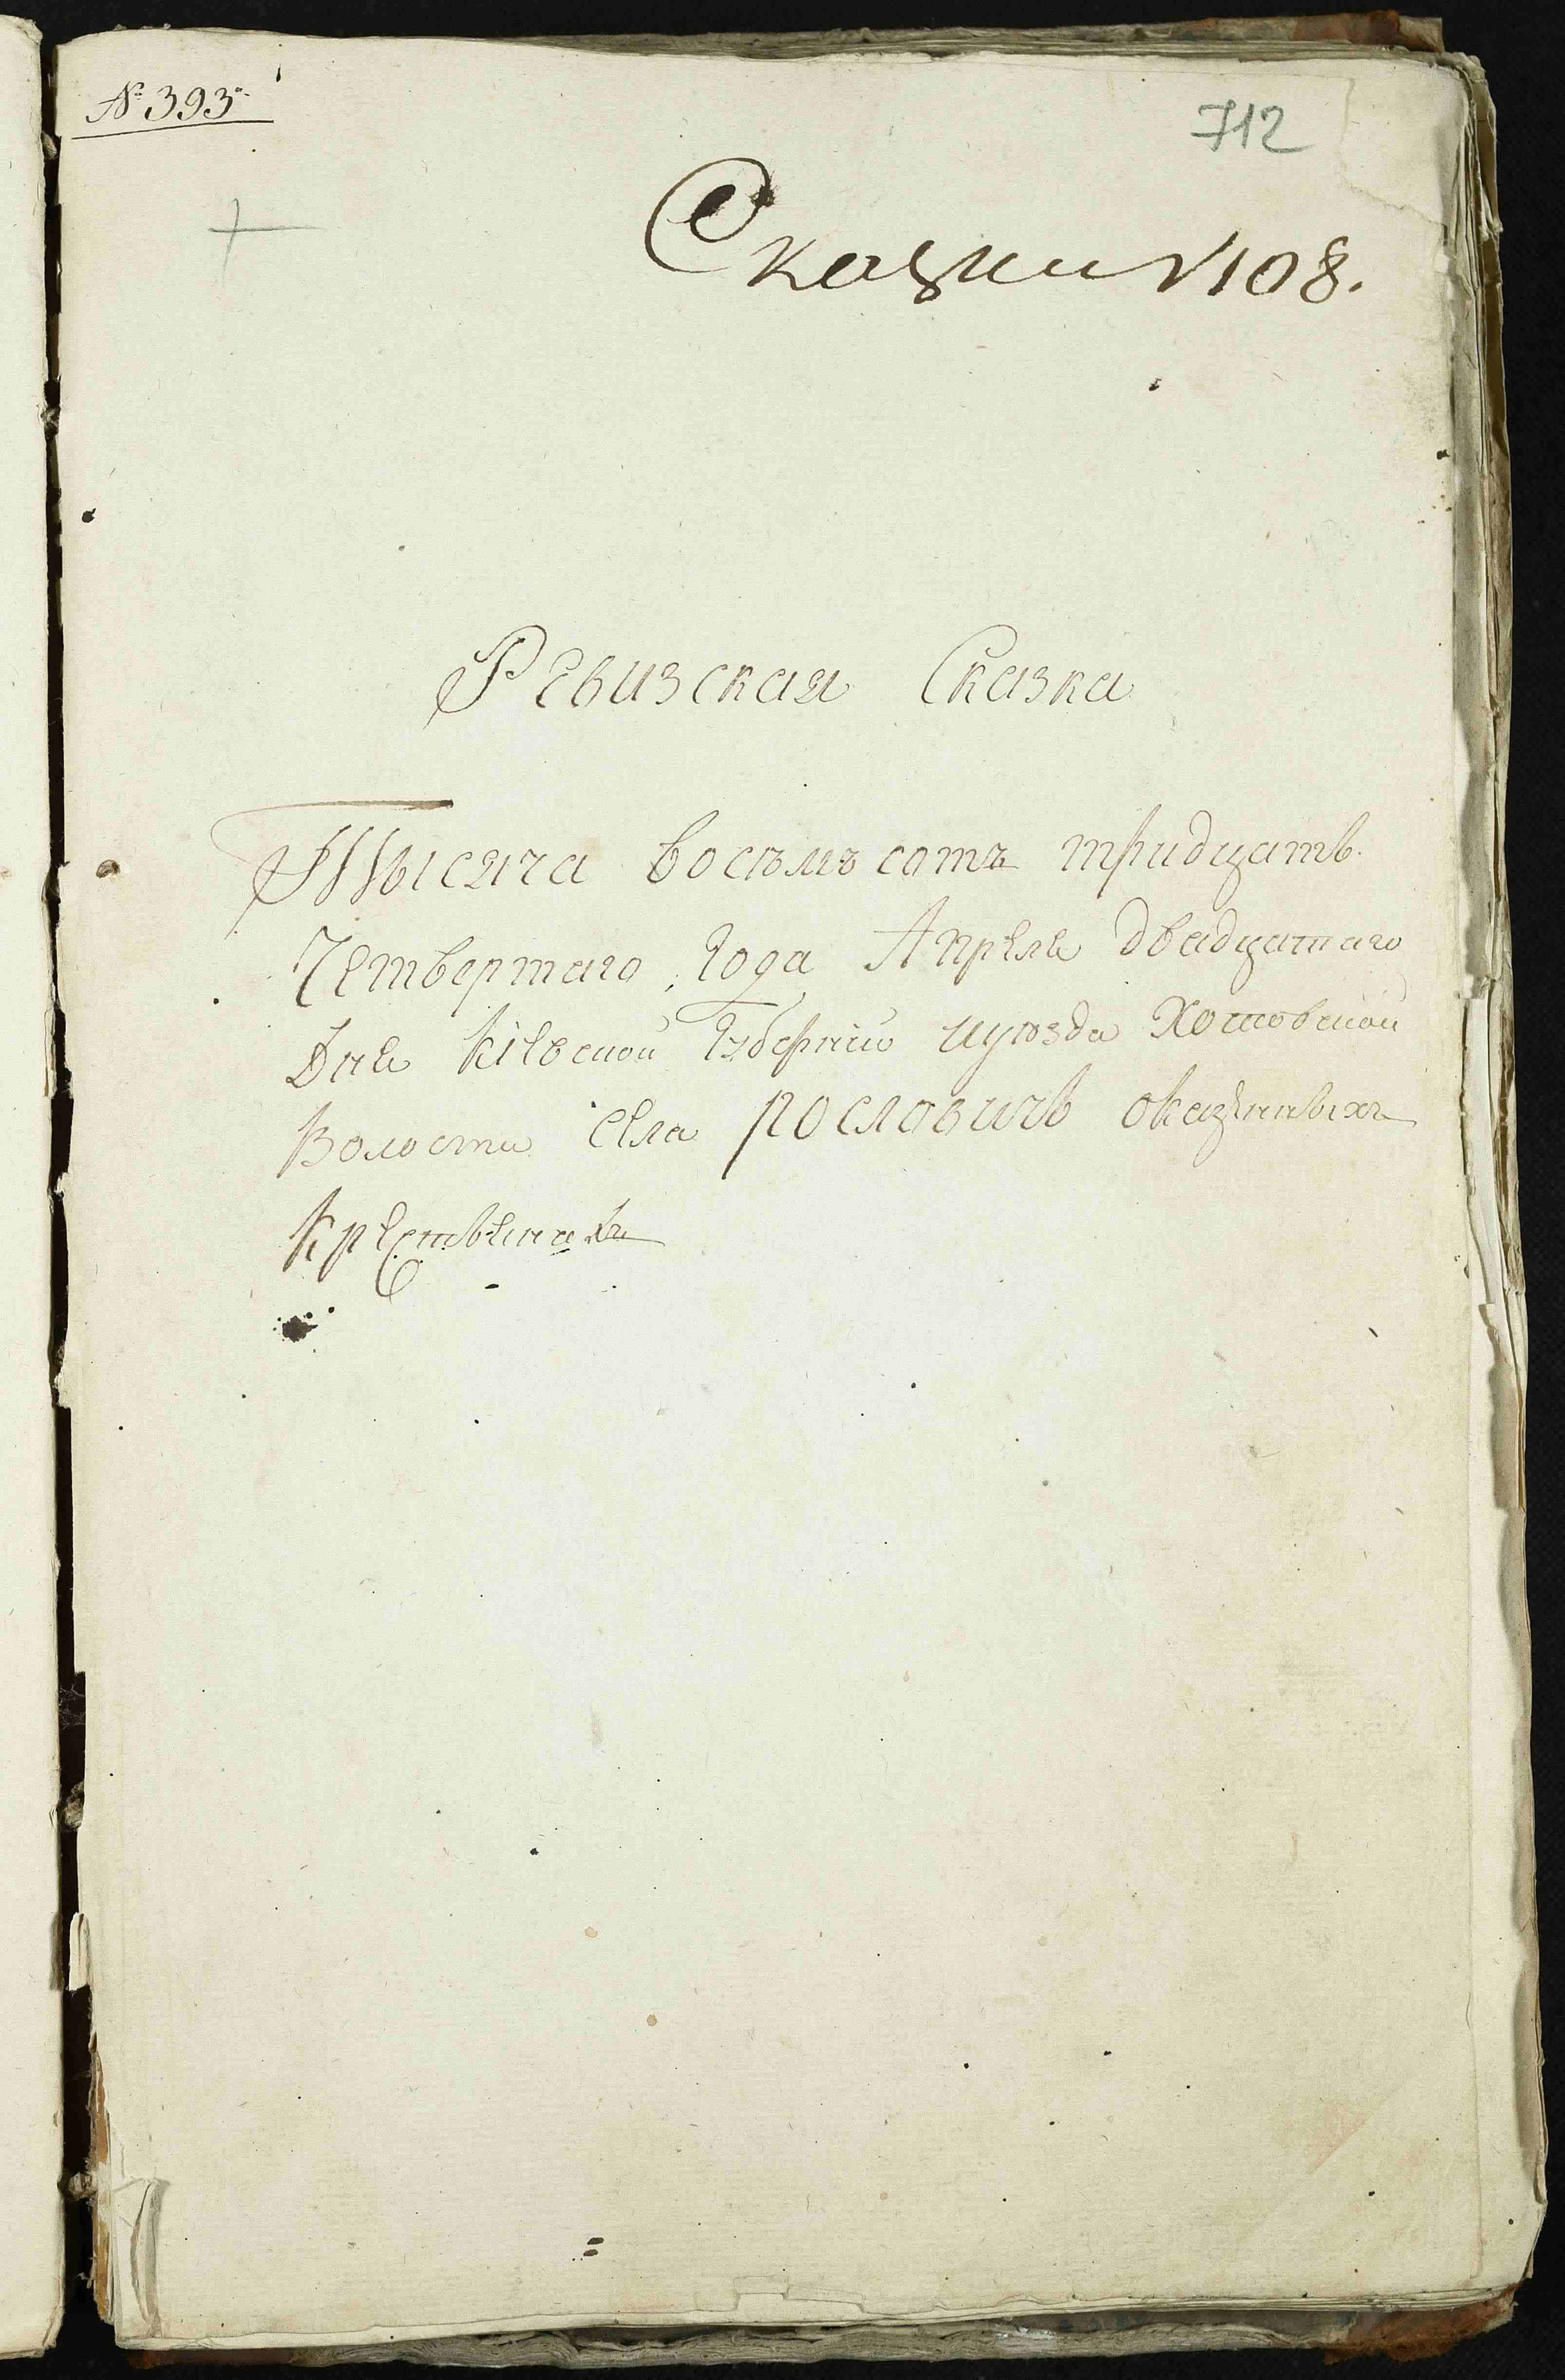 № 393
712
Сказки №108.
Ревизская Сказка
Тысяча восъмъ сотъ тридцать
Четвертаго, Года Апреле двадцатаго
Дне Кіевской Губерніи иуюзда Хотовской
Волости села пословичь оказенныхъ
Крестьенахъ